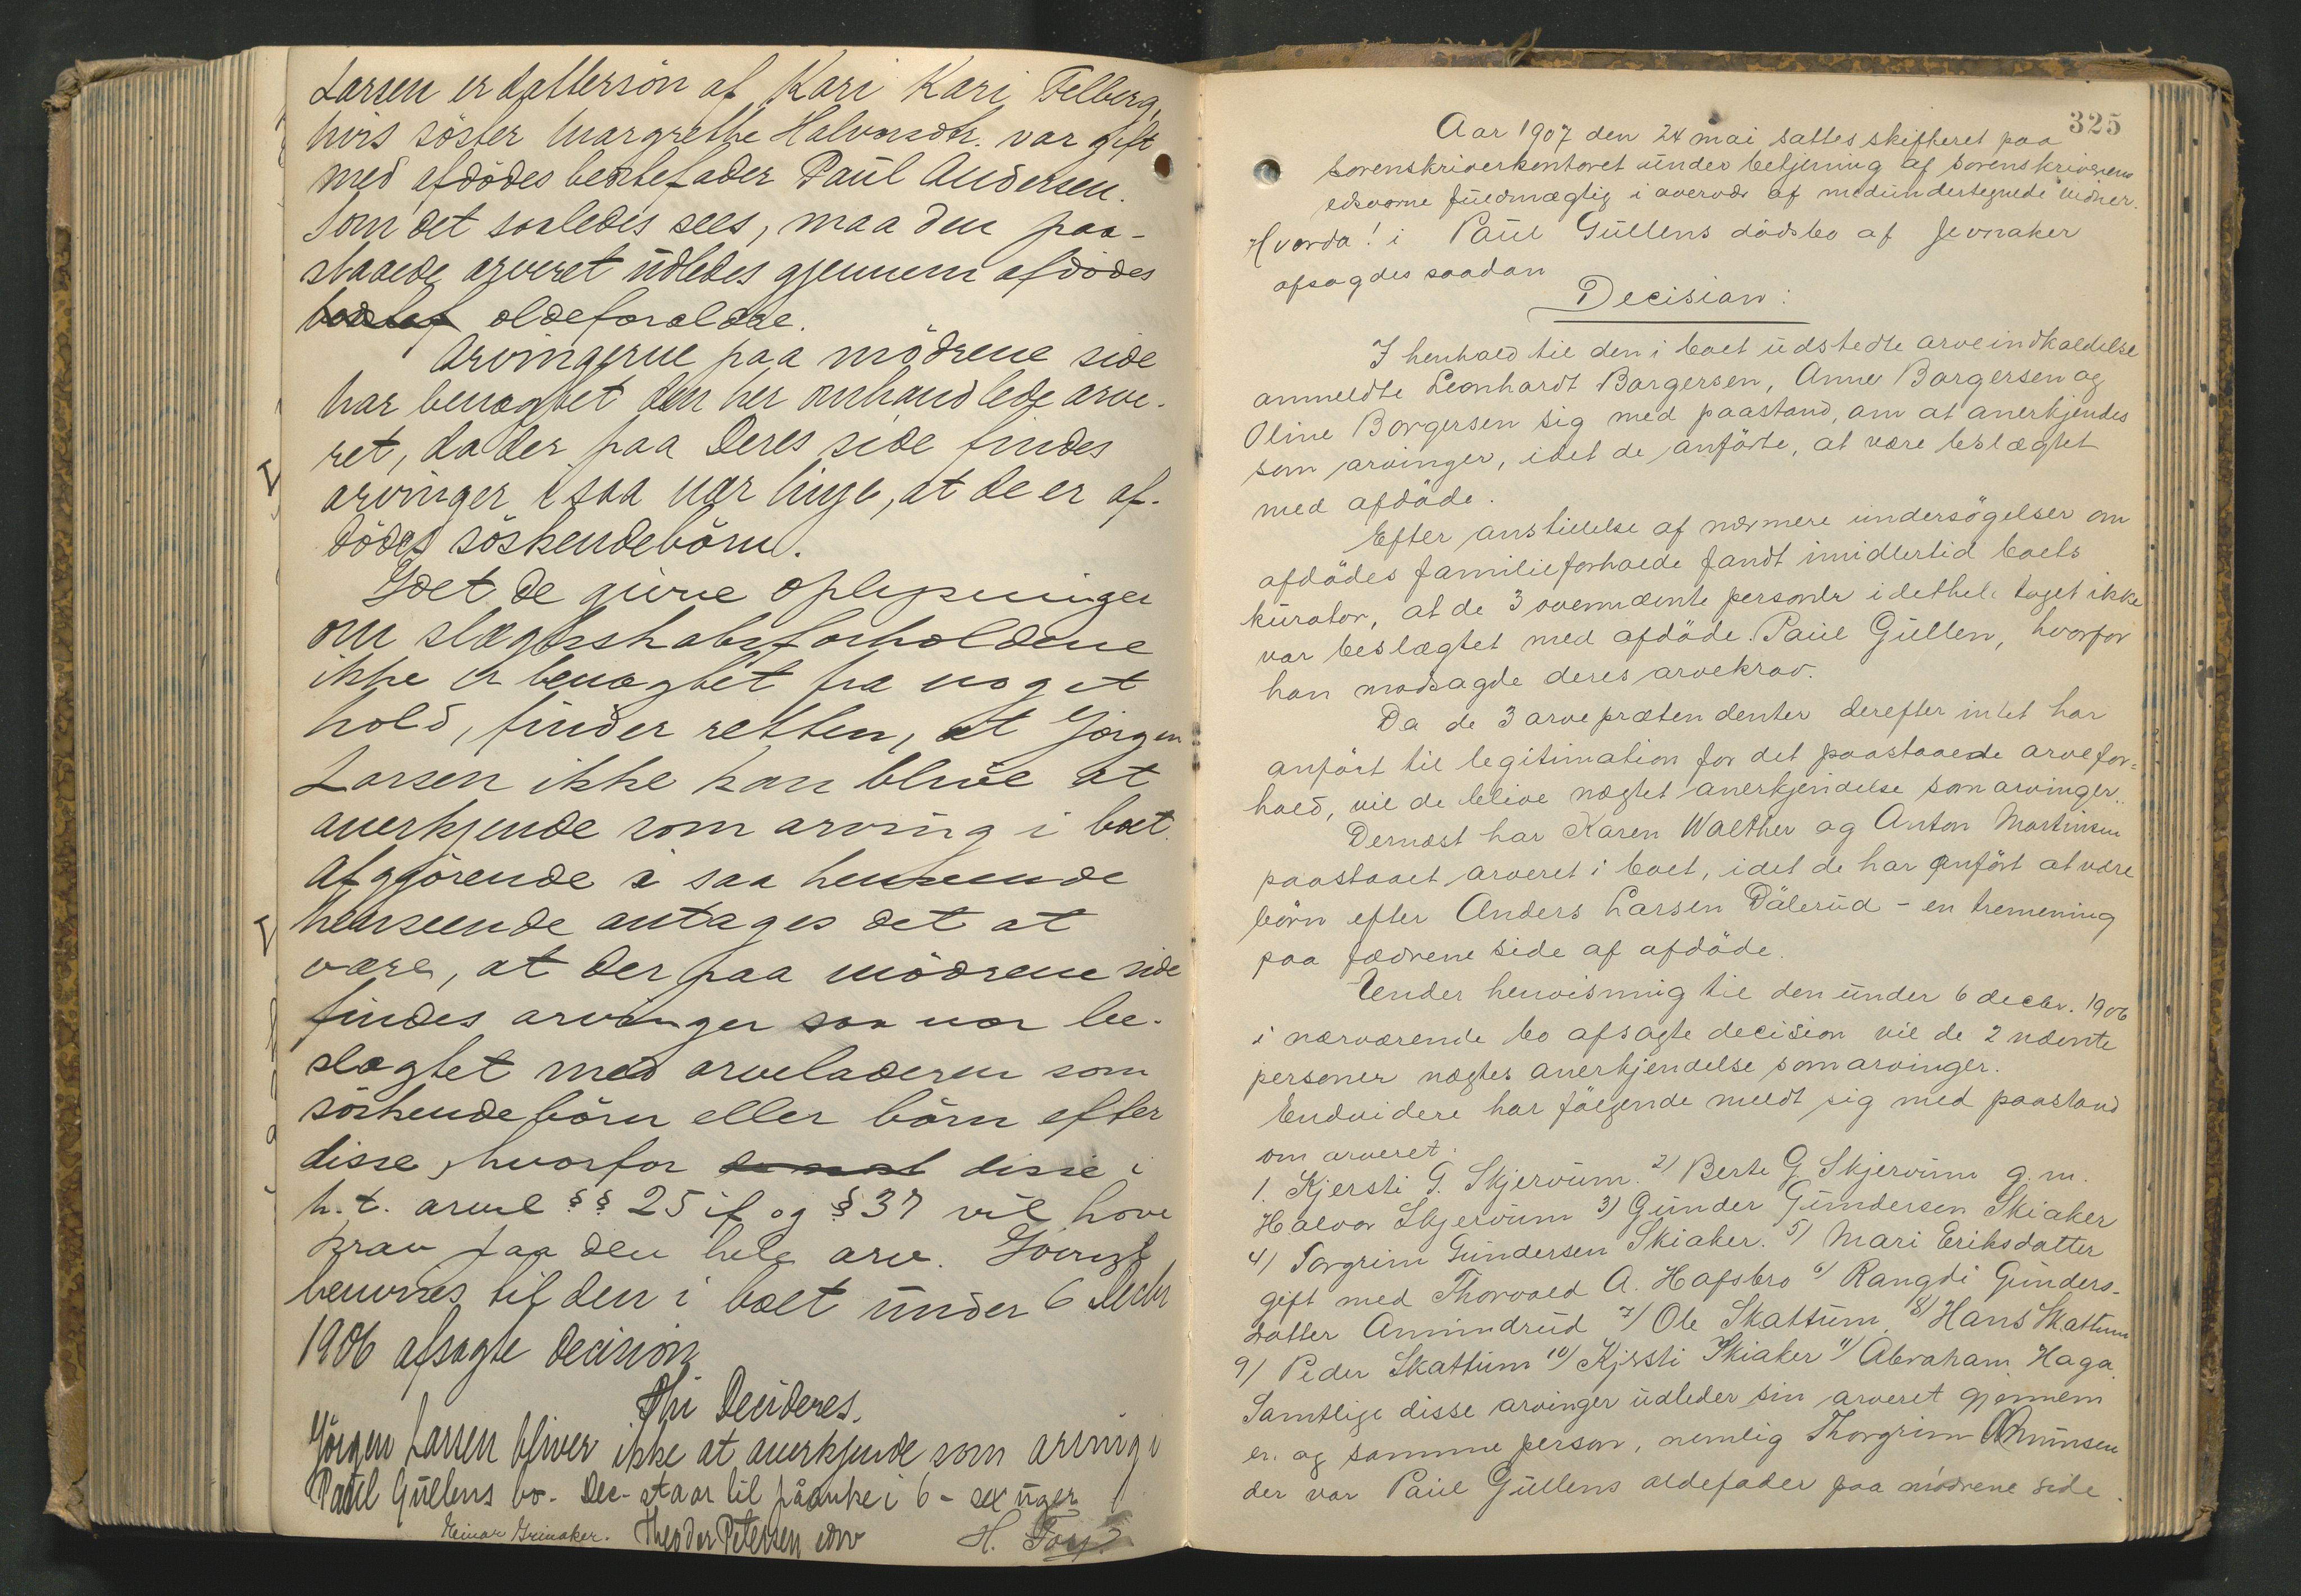 Larsen er dattersön af Kari Kari Felberg,
hvis söster Margrethe Halvorsdtr. var gift
med afdödes bedstefader Paul Andersen.
Som det saaledes sees, maa den paa-
staaede arveret udledes gjennem afdödes
oldeforældre.
Arvingerne paa mödrene side
har benægtet den her omhandlede arve-
ret, da der paa deres side findes
arvinger i saa nær linje, at de er af-
dödes söskendebörn.
Idet de givne oplysninger
om slægtsskabsforholdene
ikke er benægtet fra noget
hold, finder retten, at Jörgen
Larsen ikke kan blive at
anerkjende som arving i boet.
Afgjörende i saa henseende
henseende antages det at
være, at der paa mödrene side
findes arvinger saa nær be-
slægtet med arveladeren som
söskendebörn eller börn efter
disse, hvorfor disse i
h.t. arvel §§ 25 if og § 37 vil have
krav paa den hele arv. Iövrigt
henvises til den i boet under 6 decbr
1906 afsagte decision
Thi Decideres.
Jörgen Larsen bliver ikke at anerkjende som arving i
Paul Gullens bo. Dec. staar til påanke i 6 - sex uger
Einar Grinaker. Theodor Petersen edsv H.
325
Aar 1907 den 24 mai sattes skifteret paa
sorenskriverkontoret under betjening af sorenskriverens
edsvorne fuldmægtig i overvær af medundertegnede vidner.
Hvorda! i Paul Gullens dödsbo af Jevnaker
afsagdes saadan
Decision:
I henhold til den i boet udstedte arveindkaldelse
anmeldte Leonhardt Borgersen, Anne Borgersen og
Oline Borgersen sig med paastand, om at anerkjendes
som arvinger, idet de anförte, at være beslægtet
med afdöde.
Efter anstillelse af nærmere undersögelser om
afdödes familieforholde fandt imidlertid boets
kurator, at de 3 ovennævnte personer i det hele taget ikke
var beslægtet med afdöde Paul Gullen, hvorfor
han modsagde deres arvekrav.
Da de 3 arveprætendenter derefter intet har
anfört til legitimation for det paastaaede arvefor=
hold, vil de blive nægtet anerkjendelse som arvinger.
Dernæst har Karen Walther og Anton Martinsen
paastaaet arveret i boet, idet de har anfört at være
börn efter Anders Larsen Dälerud - en tremening
paa fædrene side af afdöde.
Under henvisning til den under 6 decbr. 1906
i nærværende bo afsagte decision vil de 2 nævnte
personer nægtes anerkjendelse som arvinger.
Endvidere har fölgende meldt sig med paastand
om arveret:
1. Kjersti G. Skjervum. 2) Berte G Skjervum g.m.
Halvor Skjervum 3) Gunder Gundersen Skiaker
4) Torgrim Gundersen Skiaker. 5) Mari Eriksdatter
gift med Thorvald A. Hafsbro 6) Rangdi Gunders-
datter Amundrud 7) Ole Skattum 8) Hans Skattum
9) Peder Skattum 10) Kjersti Skiaker 11) Abraham Haga.
Samtlige disse arvinger udleder sin arveret gjennem
en og samme person, nemlig Thorgrim
der var Paul Gullens oldefader paa mödrene side.